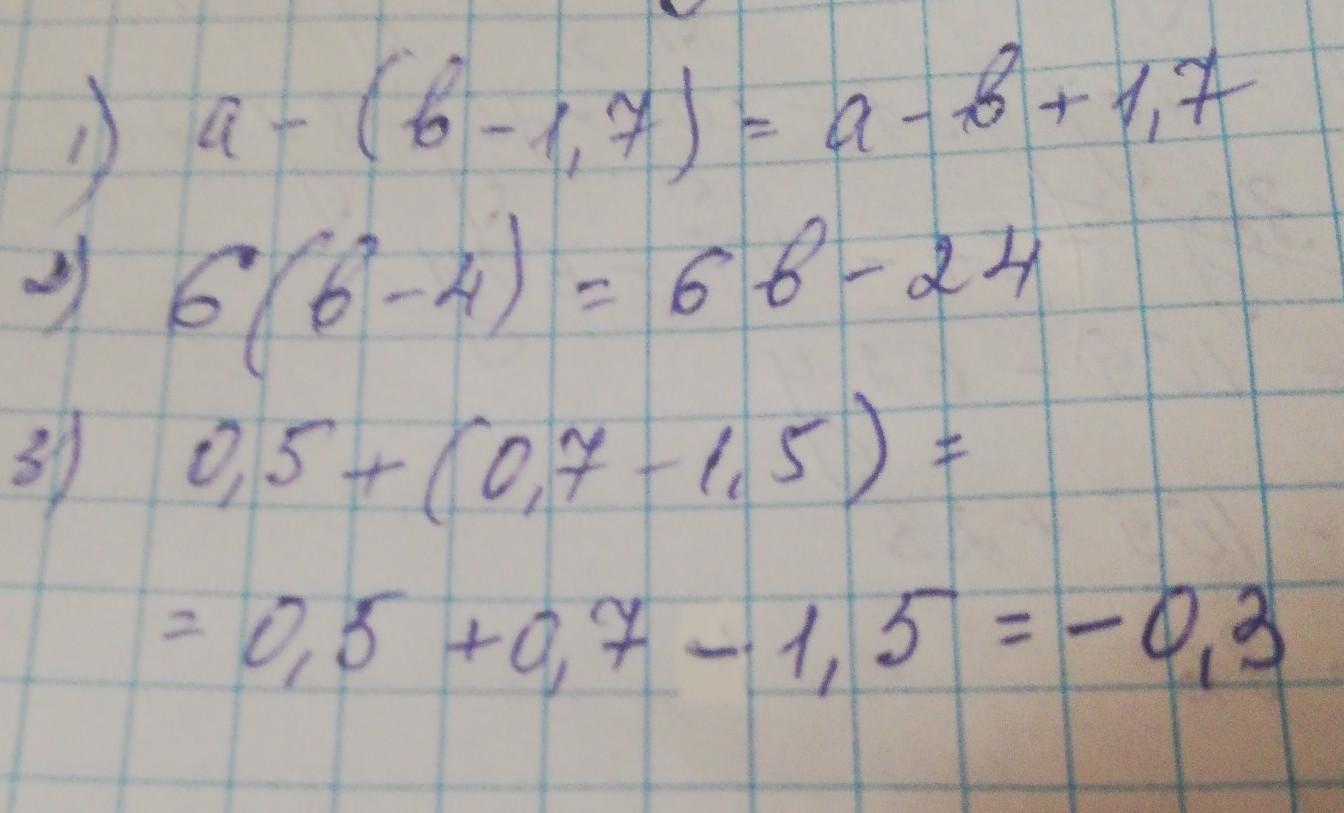 1) a - (b - 1,7) = a - b + 1,7
2) 6(b - 4) = 6b - 24
3) 0,5 + (0,7 - 1,5) =
= 0,5 + 0,7 - 1,5 = -0,3